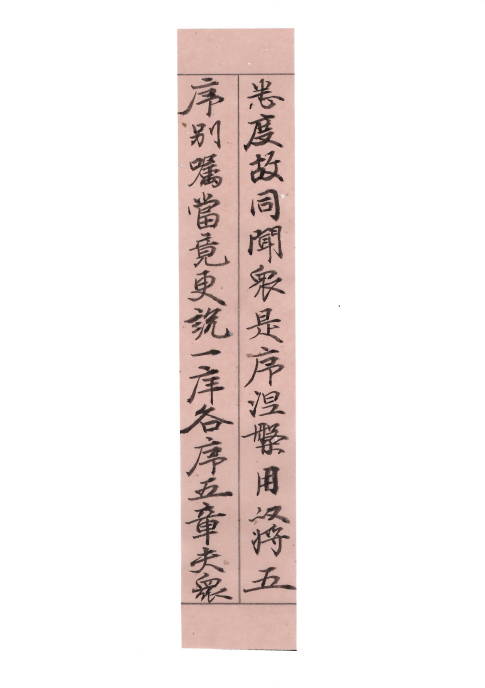 悉度故同聞衆是序涅槃用以將五
序別囑當竟更説一序各序五章夫衆